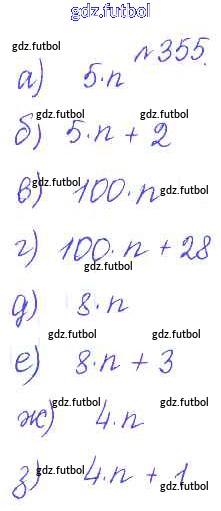 gdz.futbol
gdz.futbol №355.
а) 5·n
gdz.futbol
gdz.futbol gdz.futbol
б) 5·n + 2
gdz.futbol
в) 100·n gdz.futbol
г) 100·n + 28
gdz.futbol
д) 8·n
gdz.futbol
gdz.futbol gdz.futbol
е) 8·n + 3
gdz.futbol gdz.futbol
ж) 4·n
gdz.futbol
з) 4·n + 1
gdz.futbol